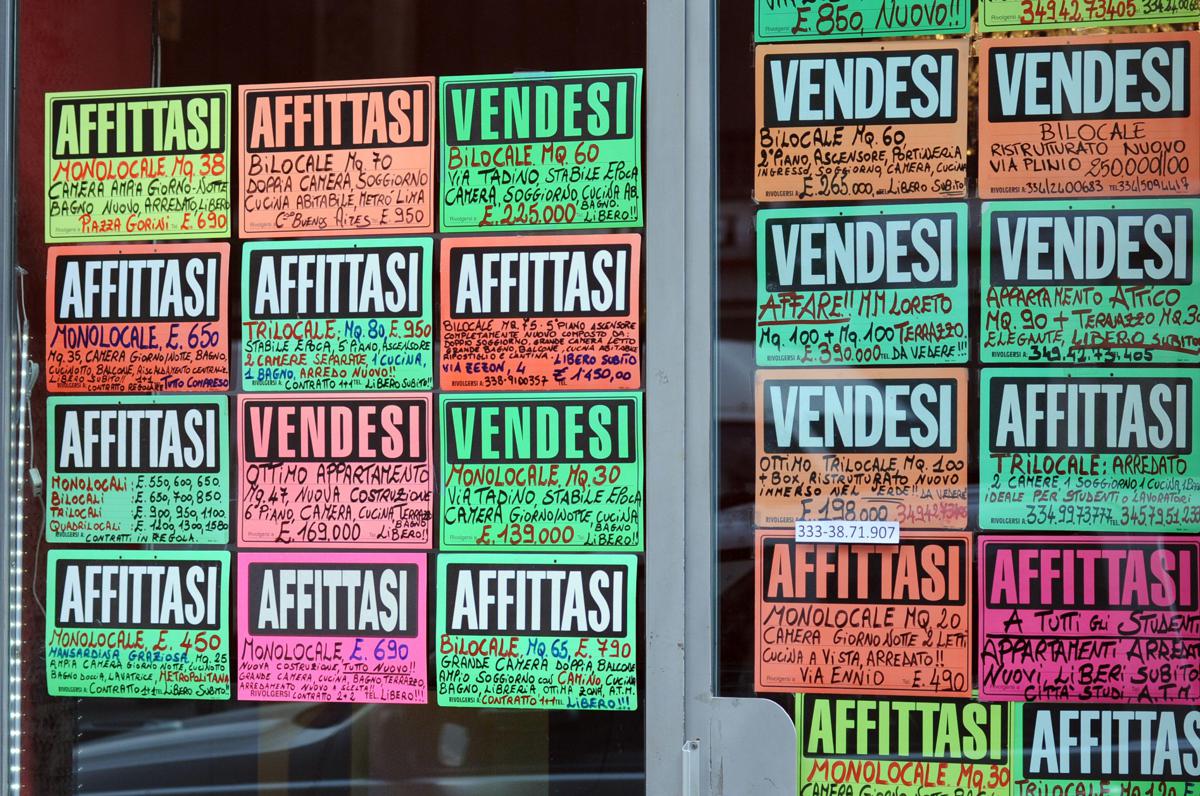 AFFITTASI
MONOLOCALE, MQ. 38
CAMERA AMPIA GIORNO-NOTTE
BAGNO NUOVO, ARREDATO, LIBERO
PIAZZA GORINI E. 690
AFFITTASI
BILOCALE MQ. 70
DOPPIA CAMERA, SOGGIORNO
CUCINA ABITABILE, METRÒ LIMA
C.SO BUENOS AIRES E 950
VENDESI
BILOCALE MQ. 60
VIA TADINO, STABILE EPOCA
CAMERA, SOGGIORNO, CUCINA AB.
BAGNO.
E. 225.000 LIBERO!!
AFFITTASI
MONOLOCALE, E. 650
MQ. 35, CAMERA GIORNO/NOTTE, BAGNO,
CUCINOTTO, BALCONE, RISCALDAMENTO
LIBERO SUBITO!! 1+1 TUTTO COMPRESO
CONTRATTO REGOLARE
AFFITTASI
TRILOCALE, MQ. 80 E. 950
STABILE EPOCA, 5° PIANO, ASCENSORE
2 CAMERE SEPARATE, 1 CUCINA,
1 BAGNO, ARREDO NUOVO!!
CONTRATTO 1+1 LIBERO SUBITO!!
AFFITTASI
BILOCALE MQ. 75 - 5° PIANO ASCENSORE
COMPLETAMENTE NUOVO COMPOSTO DA:
DOPPIO SOGGIORNO, GRANDE CAMERA LETTO
GRANDE BAGNO, BALCONE, CUCINA ABITABILE
RIPOSTIGLIO E CANTINA. LIBERO SUBITO
VIA ZEZON, 4 E 1150,00
RIVOLGERSI A: 338-9100357 TEL.
AFFITTASI
MONOLOCALI : E. 550, 600, 650
BILOCALI : E. 650, 700, 850.
TRILOCALI : E. 900, 950, 1100
QUADRILOCALI : E. 1200, 1300, 1580
CONTRATTI IN REGOLA.
VENDESI
OTTIMO APPARTAMENTO
MQ. 47, NUOVA COSTRUZIONE
6° PIANO, CAMERA, CUCINA TERRAZZO
BAGNO
E. 169.000 LIBERO!!
VENDESI
MONOLOCALE, MQ. 30
VIA TADINO, STABILE EPOCA
CAMERA GIORNO/NOTTE CUCINA
BAGNO
E. 139.000 LIBERO!!
AFFITTASI
MONOLOCALE, E. 450
MANSARDINA GRAZIOSA MQ. 25
AMPIA CAMERA GIORNO NOTTE, CUCINOTTO
BAGNO DOCCIA, LAVATRICE, METROPOLITANA
RIVOLGERSI A: CONTRATTO 1+1 LIBERO SUBITO!
AFFITTASI
MONOLOCALE, E. 690
NUOVA COSTRUZIONE, TUTTO NUOVO!!
GRANDE CAMERA, CUCINA, BAGNO, TERRAZZO,
ARREDAMENTO NUOVO A SCELTA!!
RIVOLGERSI CONTRATTO 2+2 TEL. LIBERO!!!
AFFITTASI
BILOCALE, MQ. 65, E. 790
GRANDE CAMERA DOPPIA, BALCONE
AMPIO SOGGIORNO CON CAMINO, CUCINA
BAGNO, LIBRERIA, OTTIMA ZONA, A.T.M.
RIVOLGERSI A: CONTRATTO 1+1 TEL. LIBERO!!!
E. 850, NUOVO!!
Rivolgersi A: 3494273405
VENDESI
BILOCALE MQ. 60
2° PIANO, ASCENSORE, PORTINERIA
INGRESSO, SOGGIORNO, CAMERA, CUCINA
E. 265.000, LIBERO SUBITO
VENDESI
BILOCALE
RISTRUTTURATO NUOVO
VIA PLINIO 250.000,00
RIVOLGERSI A: 3342400683 TEL. 3345094417
VENDESI
AFFARE!! MM LORETO
MQ. 100 + MQ. 100 TERRAZZO.
E. 390.000 TEL. DA VEDERE!!
VENDESI
APPARTAMENTO ATTICO
MQ. 90 + TERRAZZO MQ. 30
ELEGANTE, LIBERO SUBITO
349.42.73.405
VENDESI
OTTIMO TRILOCALE, MQ. 100
+ BOX, RISTRUTTURATO NUOVO
IMMERSO NEL VERDE!! DA VEDERE
E. 198.000
333-38.71.907
AFFITTASI
TRILOCALE: ARREDATO
2 CAMERE 1 SOGGIORNO 1 CUCINA,
IDEALE PER STUDENTI O LAVORATORI
RIVOLGERSI A: 334.9973.777 TEL. 345.79.51.23
AFFITTASI
MONOLOCALE MQ. 20
CAMERA GIORNO NOTTE 2 LETTI
CUCINA A VISTA, ARREDATO!!
VIA ENNIO E. 490
AFFITTASI
A TUTTI GLI STUDENTI
APPARTAMENTI ARREDATI
NUOVI, LIBERI SUBITO
CITTÀ STUDI, A.T.M.
AFFITTASI
MONOLOCALE MQ. 30
CAMERA GIORNO NOTTE BAGNO
AFFITTAS